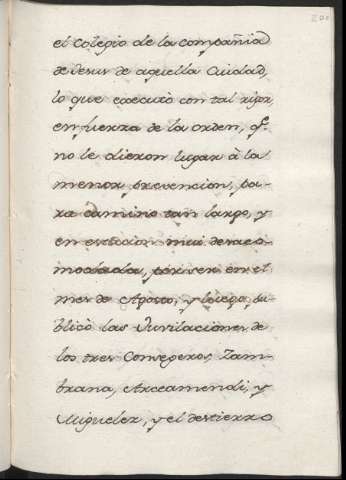 el Colegio de la Compañia
de Jesus de aquella Ciudad,
lo que executò con tal rigor,
en fuerza de la orden, q.e
no le dieron lugar à la
menor prevencion, pa-
ra camino tan largo, y
en estacion mui desaco-
modada, por ser en el
mes de Agosto, y luego pu-
blicò las Juvilaciones de
los tres Consegeros, Zam-
brana, Arceamendi, y
Miguelez, y el destierro